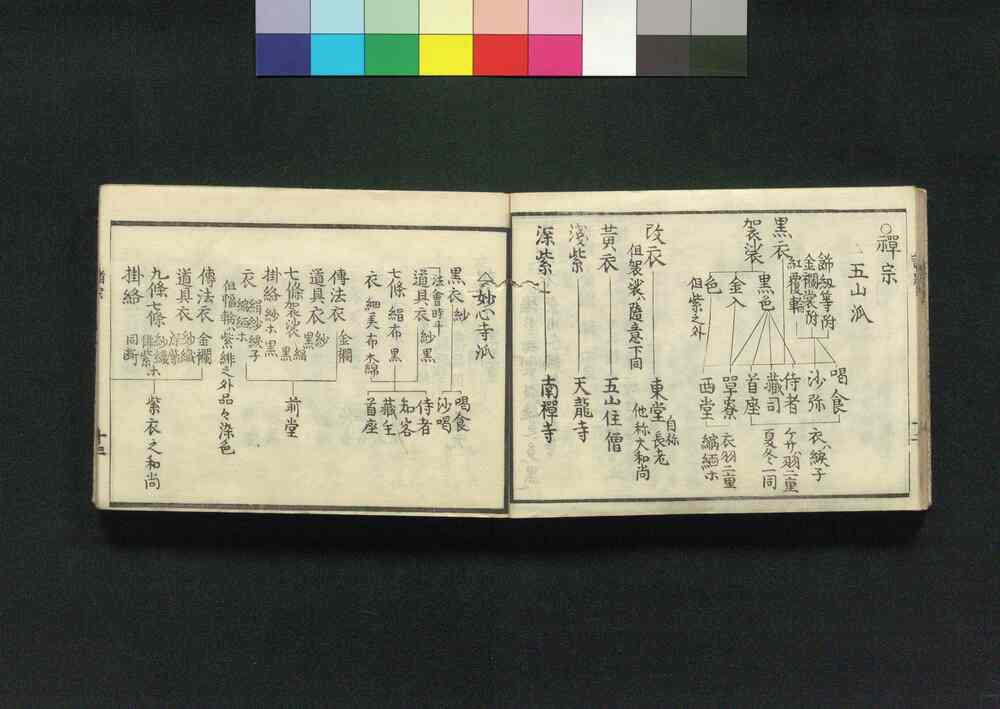 ○禪宗
五山派
飾紐等附
金襴裳附
紅覆輪
黒衣
袈裟
黒色
金入
色
但紫之外
喝食
沙弥
侍者
藏司
首座
單寮
西堂
衣綾子
夏冬一同
衣羽二重
縮緬ホ
改衣
但袈裟ハ隨意下同
東堂
自称長老
他称大和尚
黄衣
五山住僧
淺紫
天龍寺
深紫
南禪寺
妙心寺派
黒衣紗
喝食
沙喝
注會時斗
道具衣 紗黒
七條 絹布黒
衣 細美布木綿
侍者
知客
藏主
首座
傳法衣 金襴
道具衣 紗黒
七條袈裟 絹黒
掛絡 紗ホ黒
衣 絹紗綾子縮緬ホ
但幅輪ハ紫緋之外品々染色
前堂
傳法衣 金襴
道具衣
九條七條
掛絡 同断
紫衣之和尚
諸宗
十三